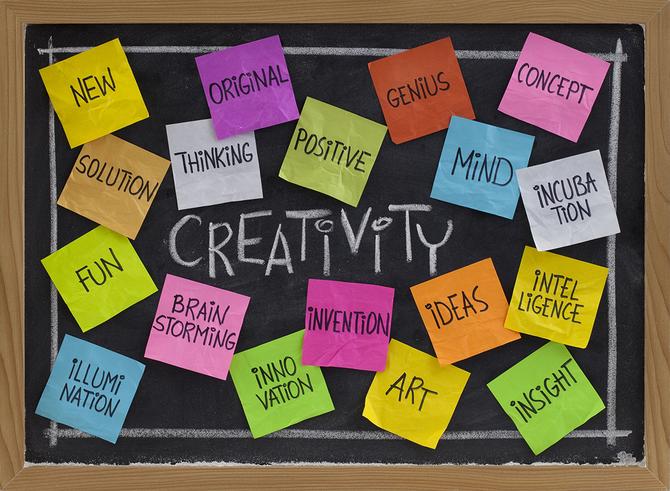 NEW
ORiGiNAL
GENiUS
CONCEPT
SOLUTiON
THiNKiNG
POSiTiVE
MiND
iNCUBA
TiON
CREATiViTY
FUN
BRAiN
STORMiNG
iNVENTiON
iDEAS
iNTEL
LiGENCE
iLLUMi
NATiON
iNNO
VATiON
ART
iNSiGHT